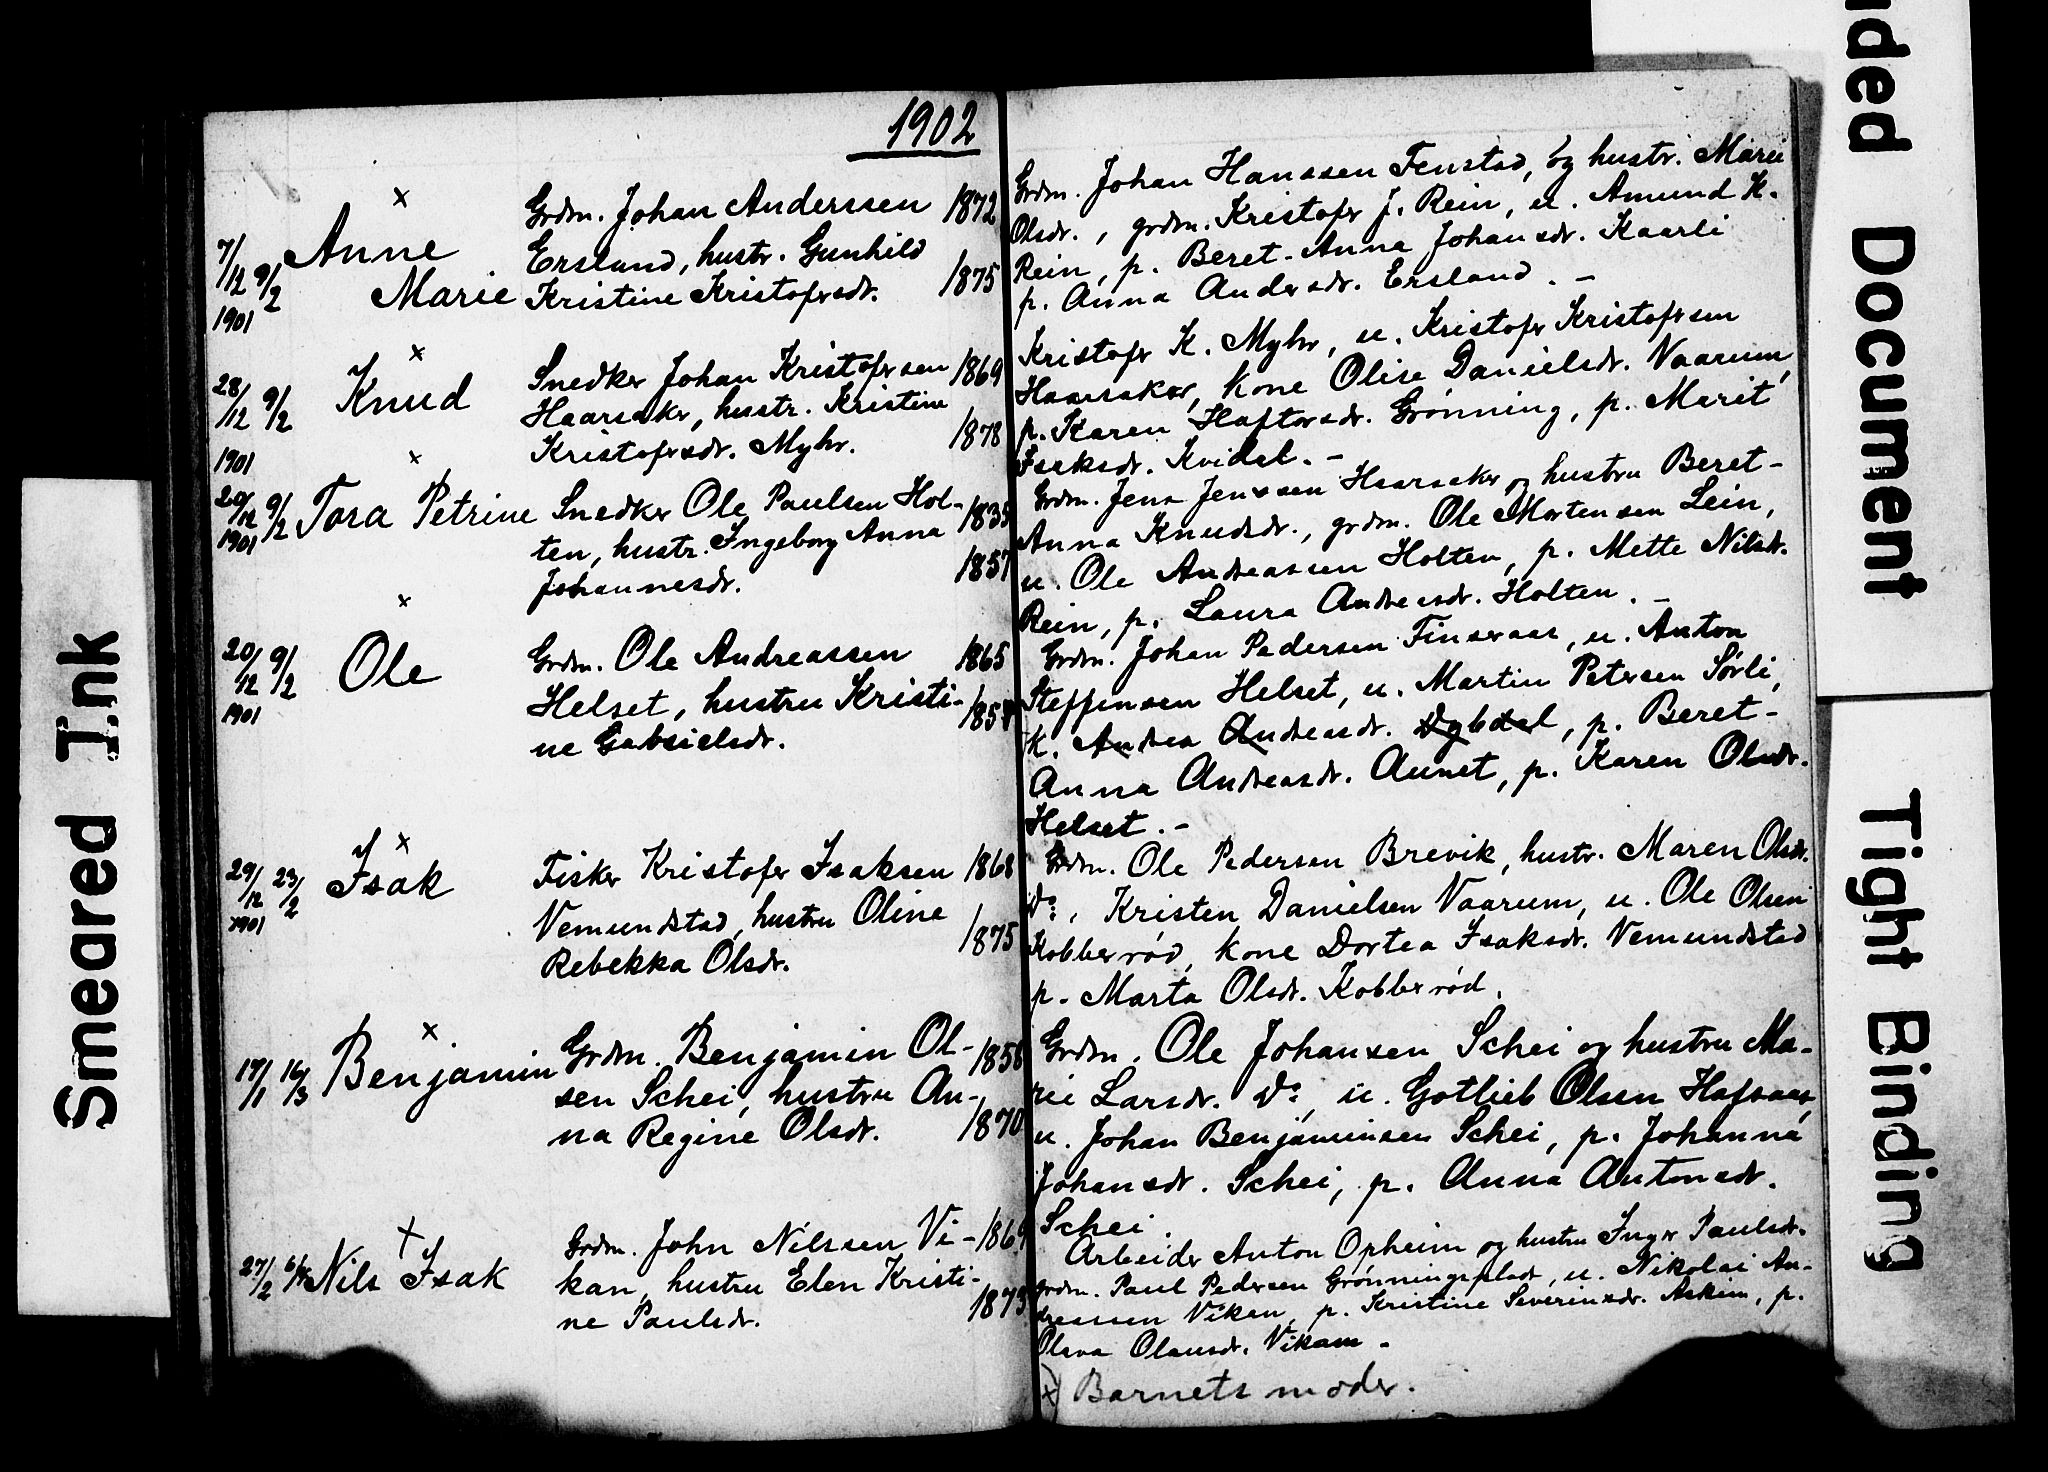 1902
7/12 1901 9/2
Anne
Marie
Grdm. Johan Anderssen 1872
Ersland, hustr. Gunhild
Kristine Kristofersdr. 1875
28/12 1901 9/2
Knud
Snedker Johan Kristofersen 1869
Haarsaker, hustr. Kristine
Kristofersdr. Myhr. 1878
20/12 1901 9/2
Tora Petrine
Snedker Ole Paulsen Hol- 1835
ten, hustr. Ingeborg Anna
Johannesdr. 1857
20/12 1901 9/2
Ole
Grdm. Ole Andreassen 1865
Helset, hustru Kristi-
ne Gabrielsdr.
29/12 1901 23/2
Isak
Fisker Kristofer Isaksen 1868
Vemundstad, hustru Oline
Rebekka Olsdr. 1875
17/1 16/3
Benjamin
Grdm. Benjamin Ol-
sen Schei, hustru An-
na Regine Olsdr. 1870
27/2
Nils Isak
Grdm. John Nilssen Vi-
kan, hustru Elen Kristi-
ne Paulsdr. 1873
Grdm. Johan Hanssen Fenstad, og hustr. Marie
Olsdr., grdm. Kristofer J. Rein, u. Amund K.
Rein, p. Beret-Anna Johansdr. Kaarli
p. Anna Andersdr. Ersland. -
Kristofer K. Myhr, u. Kristofer Kristofersen
Haarsaker, kone Olise Danielsdr. Vaarum,
p. Karen Haftorsdr. Grønning, p. Marit
Isaksdr. Kvidal. -
Grdm. Jens Jenssen Haarsaker og hustru Beret-
Anna Knudsdr., grdm. Ole Mortensen Lein,
u. Ole Andreassen Holten, p. Mette Nilsdr.
Rein, p. Laura Andreasdr. Holten. -
Grdm. Johan Pedersen Finseraas, u. Anton
Steffensen Helset, u. Martin Petersen Sørli,
k. Andrea Andreasdr. Dybdal, p. Beret-
Anna Andreasdr. Aunet, p. Karen Olsdr.
Helset. -
Grdm. Ole Pedersen Brevik, hustr. Maren Olsdr.
do, Kristen Danielsen Vaarum, u. Ole Olsen
Kobberrød, kone Dortea Isaksdr. Vemundstad
p. Marta Olsdr. Kobberrød.
Grdm. Ole Johansen Schei og hustru Ma-
rie Larsdr. do, u. Gotlieb Olsen Hafsaas,
u. Johan Benjaminsen Schei, p. Johanna
Johansdr. Schei, p. Anna Antonsdr.
Schei.
Arbeider Anton Opheim og hustru Inger Paulsdr.
grdm. Paul Pedersen Grønningsplads, u. Nikolai An-
dreassen Vikan, p. Kristine Severinsdr. Askim, p.
Olava Olausdr. Vikam.
x) Barnets moder.
Smeared Ink
nded Document
Tight Binding